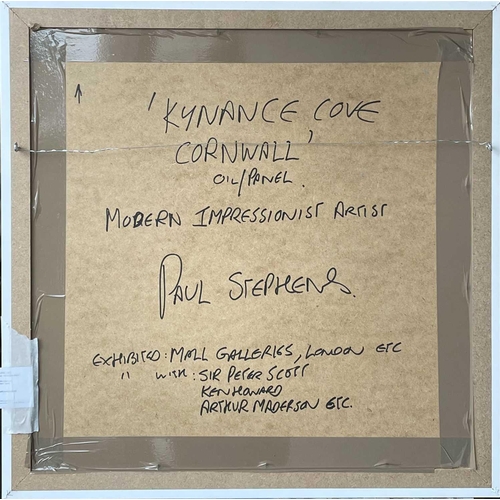 'KYNANCE COVE
CORNWALL'
OIL/PANEL.
MODERN IMPRESSIONIST ARTIST
PAUL STEPHENS.
EXHIBITED: MALL GALLERIES, LONDON ETC
" WITH: SIR PETER SCOTT
KEN HOWARD
ARTHUR MADERSON ETC.